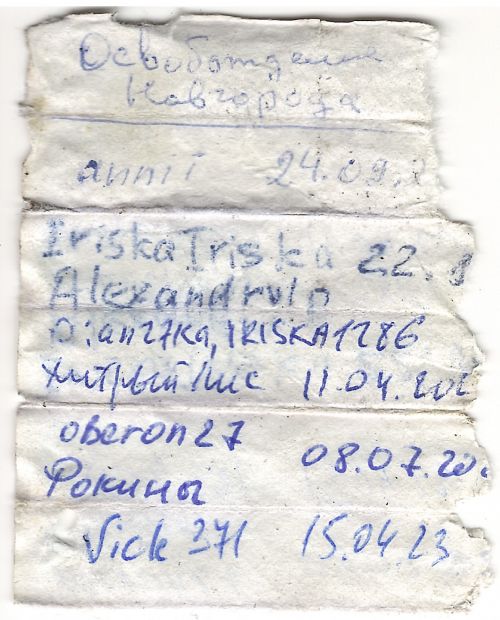 Освобождение
Новгорода
annii 24.09.2
IriskaIriska 22.
Alexandrvlp
Dian27ka, IRISKA1286
ХитрыйЛис 11.04.202
oberon27
08.07.20
Рокины
Vick 271 15.04.23